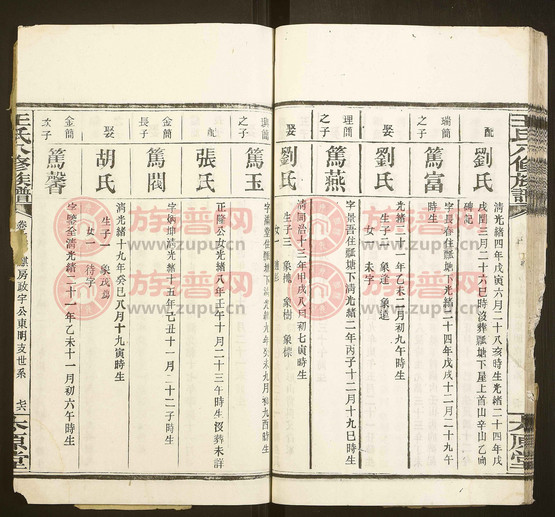 王氏八修族譜
太原堂
配
劉氏
清光緒四年戊寅六月二十八亥時生光緒二十四年戊
戌閏三月二十六巳時沒葬騐塘下屋上首山辛山乙向
碑記
瑞簡
之子
篤富
字長春住騐塘下光緒二十四年戊戌十二月二十九午
時生
娶
劉氏
光緒二十一年乙未二月初九午時生
生子二 象達 象遠
女一 未字
理簡
之子
篤燕
字景吾住騐塘下清光緒二年丙子十二月十九巳時生
娶
劉氏
清同治十三年甲戌八月初七寅時生
生子三 象槐 象樹 象標
之子
篤玉
配
張氏
正隆公女光緒八年壬午十月二十三午時生沒葬未詳
金簡
長子
篤閥
字炳坤清光緒十五年己丑十一月二十二子時生
娶
胡氏
清光緒十九年癸巳八月十九寅時生
生子一
女一 待字
金簡
次子
篤馨
字鑒全清光緒二十一年乙未十一月初六午時生
王氏八修族譜
麒房政字公東明支世系
太原堂
族譜网
www.zupu.cn
族譜网
www.zupu.cn
族譜网
www.zupu.cn
族譜网
www.zupu.cn